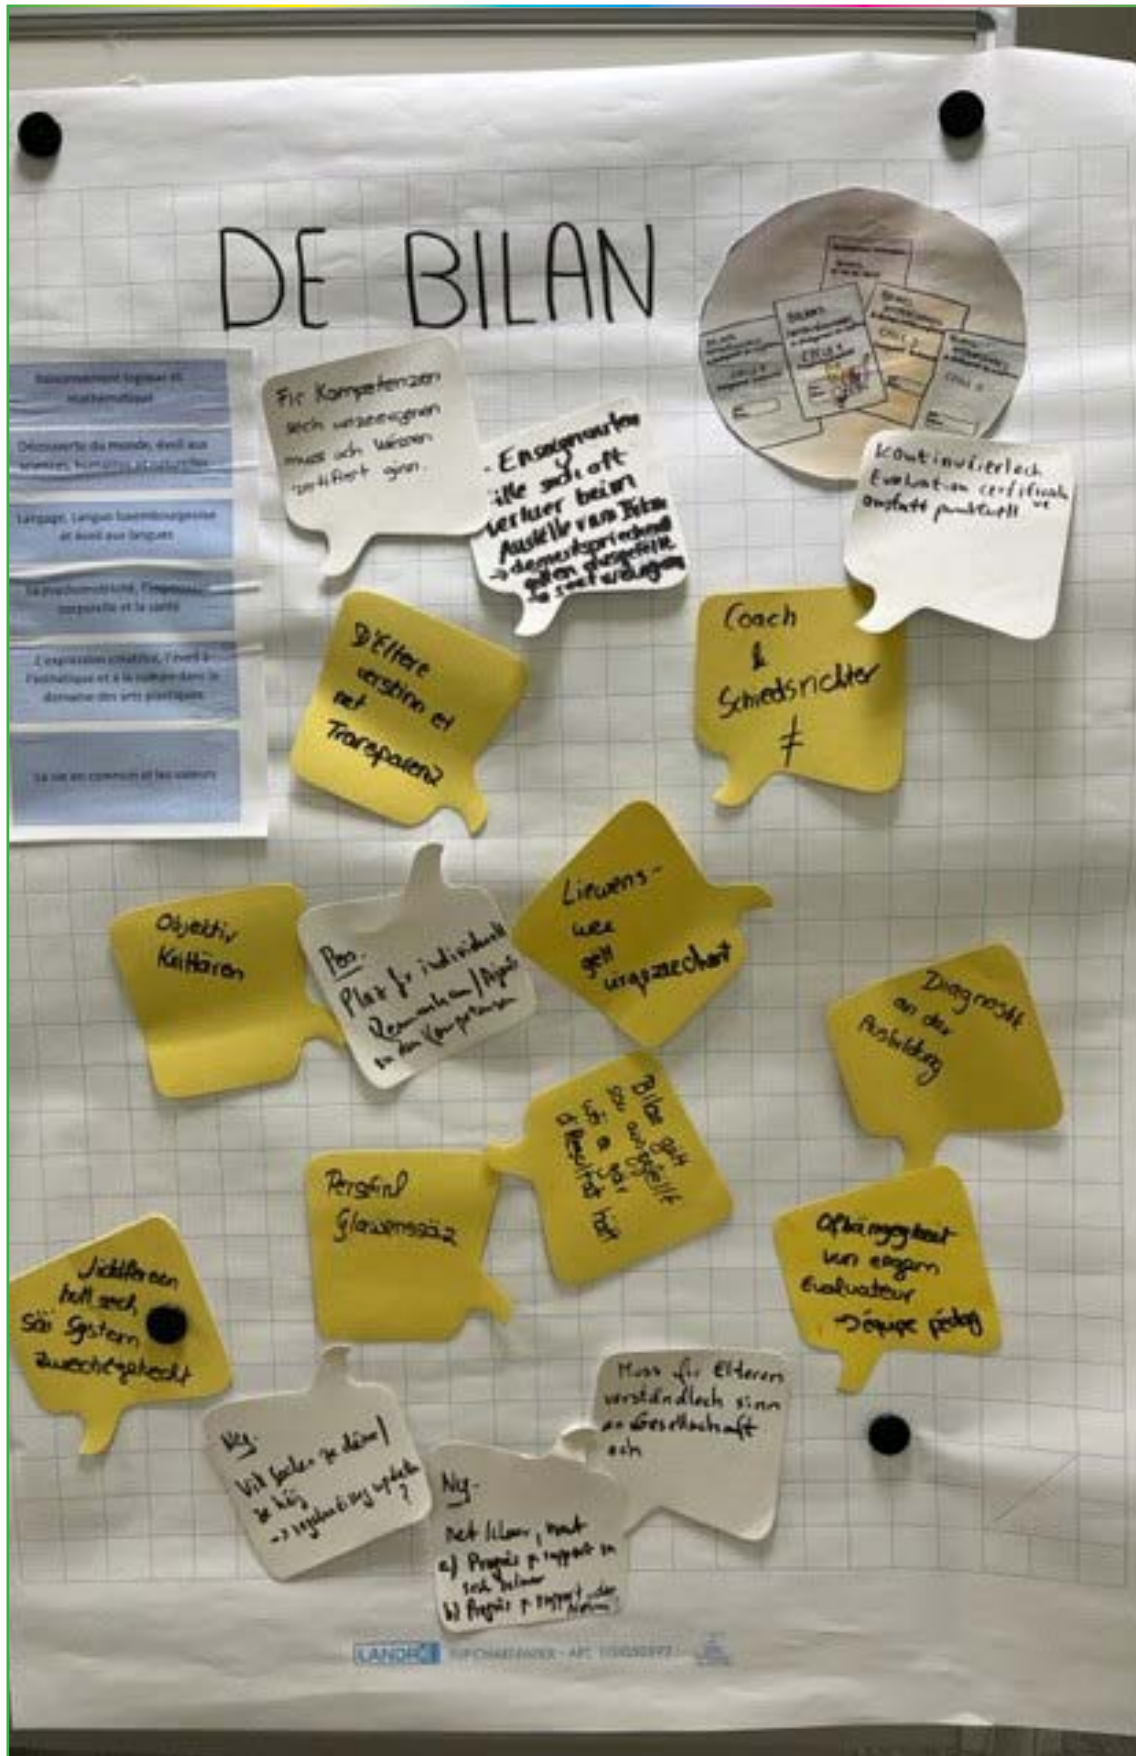 DE BILAN
Raisonnement logique et
mathématique
Découverte du monde, éveil aux
sciences humaines et naturelles
Langage, langue luxembourgeoise
et éveil aux langues
La psychomotricité, l'expression
corporelle et la santé
L'expression créatrice, l'éveil à
l'esthétique et à la culture dans le
domaine des arts plastiques
La vie en commun et les valeurs
Fir Kompetenzen
sech unzeeegenen
muss och Wëssen
zertifiert ginn.
- Enseignanten
fille sech oft
verluer beim
Ausfëlle vum Bilan
Kontinuéierlech
Evaluation certificative
anstatt punktuell
D'Eltere
verstinn et
net
Transparenz
Coach
&
Schiedsrichter
≠
Objektiv
Kritären
Pos.
Plaz fir individuell
Liewens-
wee
gëtt
virgezeechent
Diagnostik
an der
Ausbildung
Bilan gëtt
sou ausgefëllt
wéi e gär
d'Resultat hätt
Perséinl
Glawenssäz
Jiddfereen
huet sech
säi System
zwechegebaut
Ofhängegkeet
vun engem
Evaluateur
→ équipe pédag
Muss fir Elteren
verständlech sinn
an Gesellschaft
och
Neg.
Vill Socken ze
ze héij
?
Neg.
net kloer,
a) Progrès p. rapport zu
sech selwer
b) Progrès p. rapport
LANDRÉ FLIPCHARTPAPIER - ART.